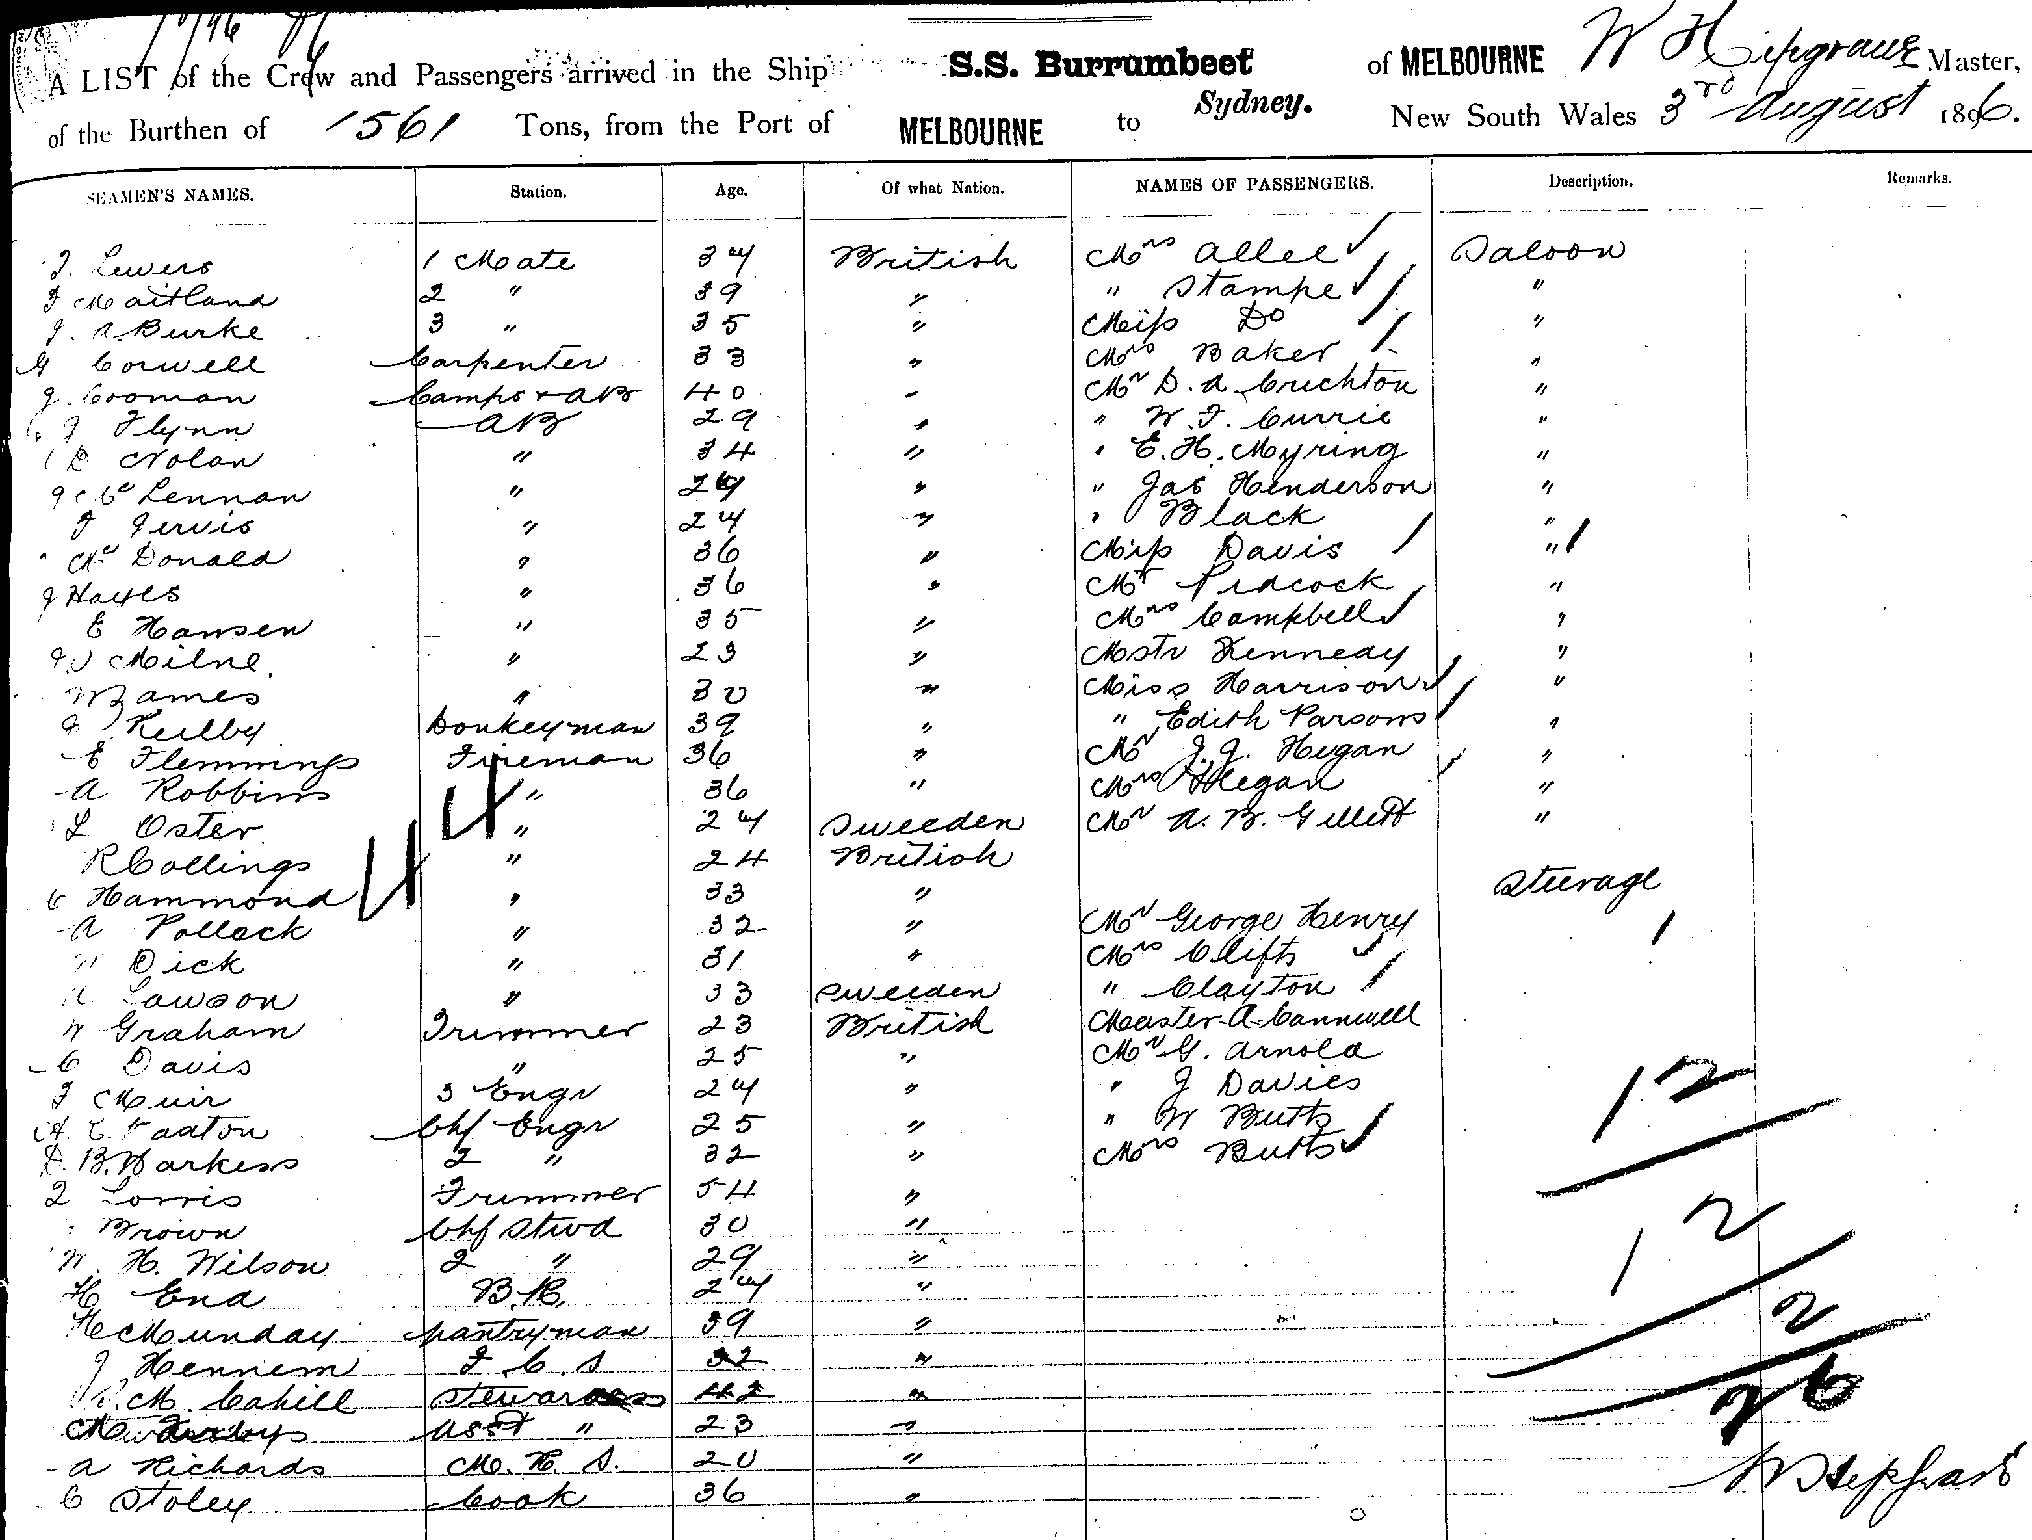 A LIST of the Crew and Passengers arrived in the Ship S.S. Burrumbeet of MELBOURNE W Hipgrave Master,
of the Burthen of 1561 Tons, from the Port of MELBOURNE to Sydney. New South Wales 3rd August 1896.
SEAMEN'S NAMES. Station. Age. Of what Nation. NAMES OF PASSENGERS. Description. Remarks.
J. Lewers 1 Mate 34 British Mrs Allee Saloon
J Maitland 2 " 39 " " Stampe "
J. A Burke 3 " 35 " Miss Do "
G Corwell Carpenter 33 " Mrs Baker "
J. Cooman Lamps + AB 40 " Mr D. A. Crichton "
J Flynn AB 29 " " W. J. Currie "
D Nolan " 34 " " E. H. Myring "
Mc Lennan " 29 " " Jas Henderson "
J Jervis " 24 " " Black "
Mc Donald " 36 " Miss Davis "
J Hayes " 36 " Mr Pidcock "
E Hansen " 35 " Mrs Campbell "
Milne " 23 " Mstr Kennedy "
James " 30 " Miss Harrison "
Reilby Donkeyman 39 " " Edith Parsons "
E Flemmings Fireman 36 " Mr J. J. Hegan "
A Robbins " 36 " Mrs Hegan "
L Oster " 24 Sweeden Mr A. B. Gillett "
R Collings " 24 British
C Hammond " 33 " Steerage
A Pollock " 32 " Mr George Henry
W Dick " 31 " Mrs Clifts
A Lawson " 33 Sweeden " Clayton
W Graham Trimmer 23 British Master A Cannwell
C Davis " 25 " Mr G. Arnold
J Muir 3 Engr 24 " " J Davies
Chf Engr 25 " " W Butts
D. B. Harkess 2 " 32 " Mrs Butts
Lorris Trimmer 54 "
Brown Chf Stwd 30 "
W. H. Wilson 2 " 29 "
H End B.K. 24 "
H Munday Pantryman 39 "
J Hennem F. C. S 32 "
M. Cahill Stewardess 42 "
Asst " 23 "
A Richards M. R. S. 20 "
C Stoley Cook 36 "
12
12
2
26